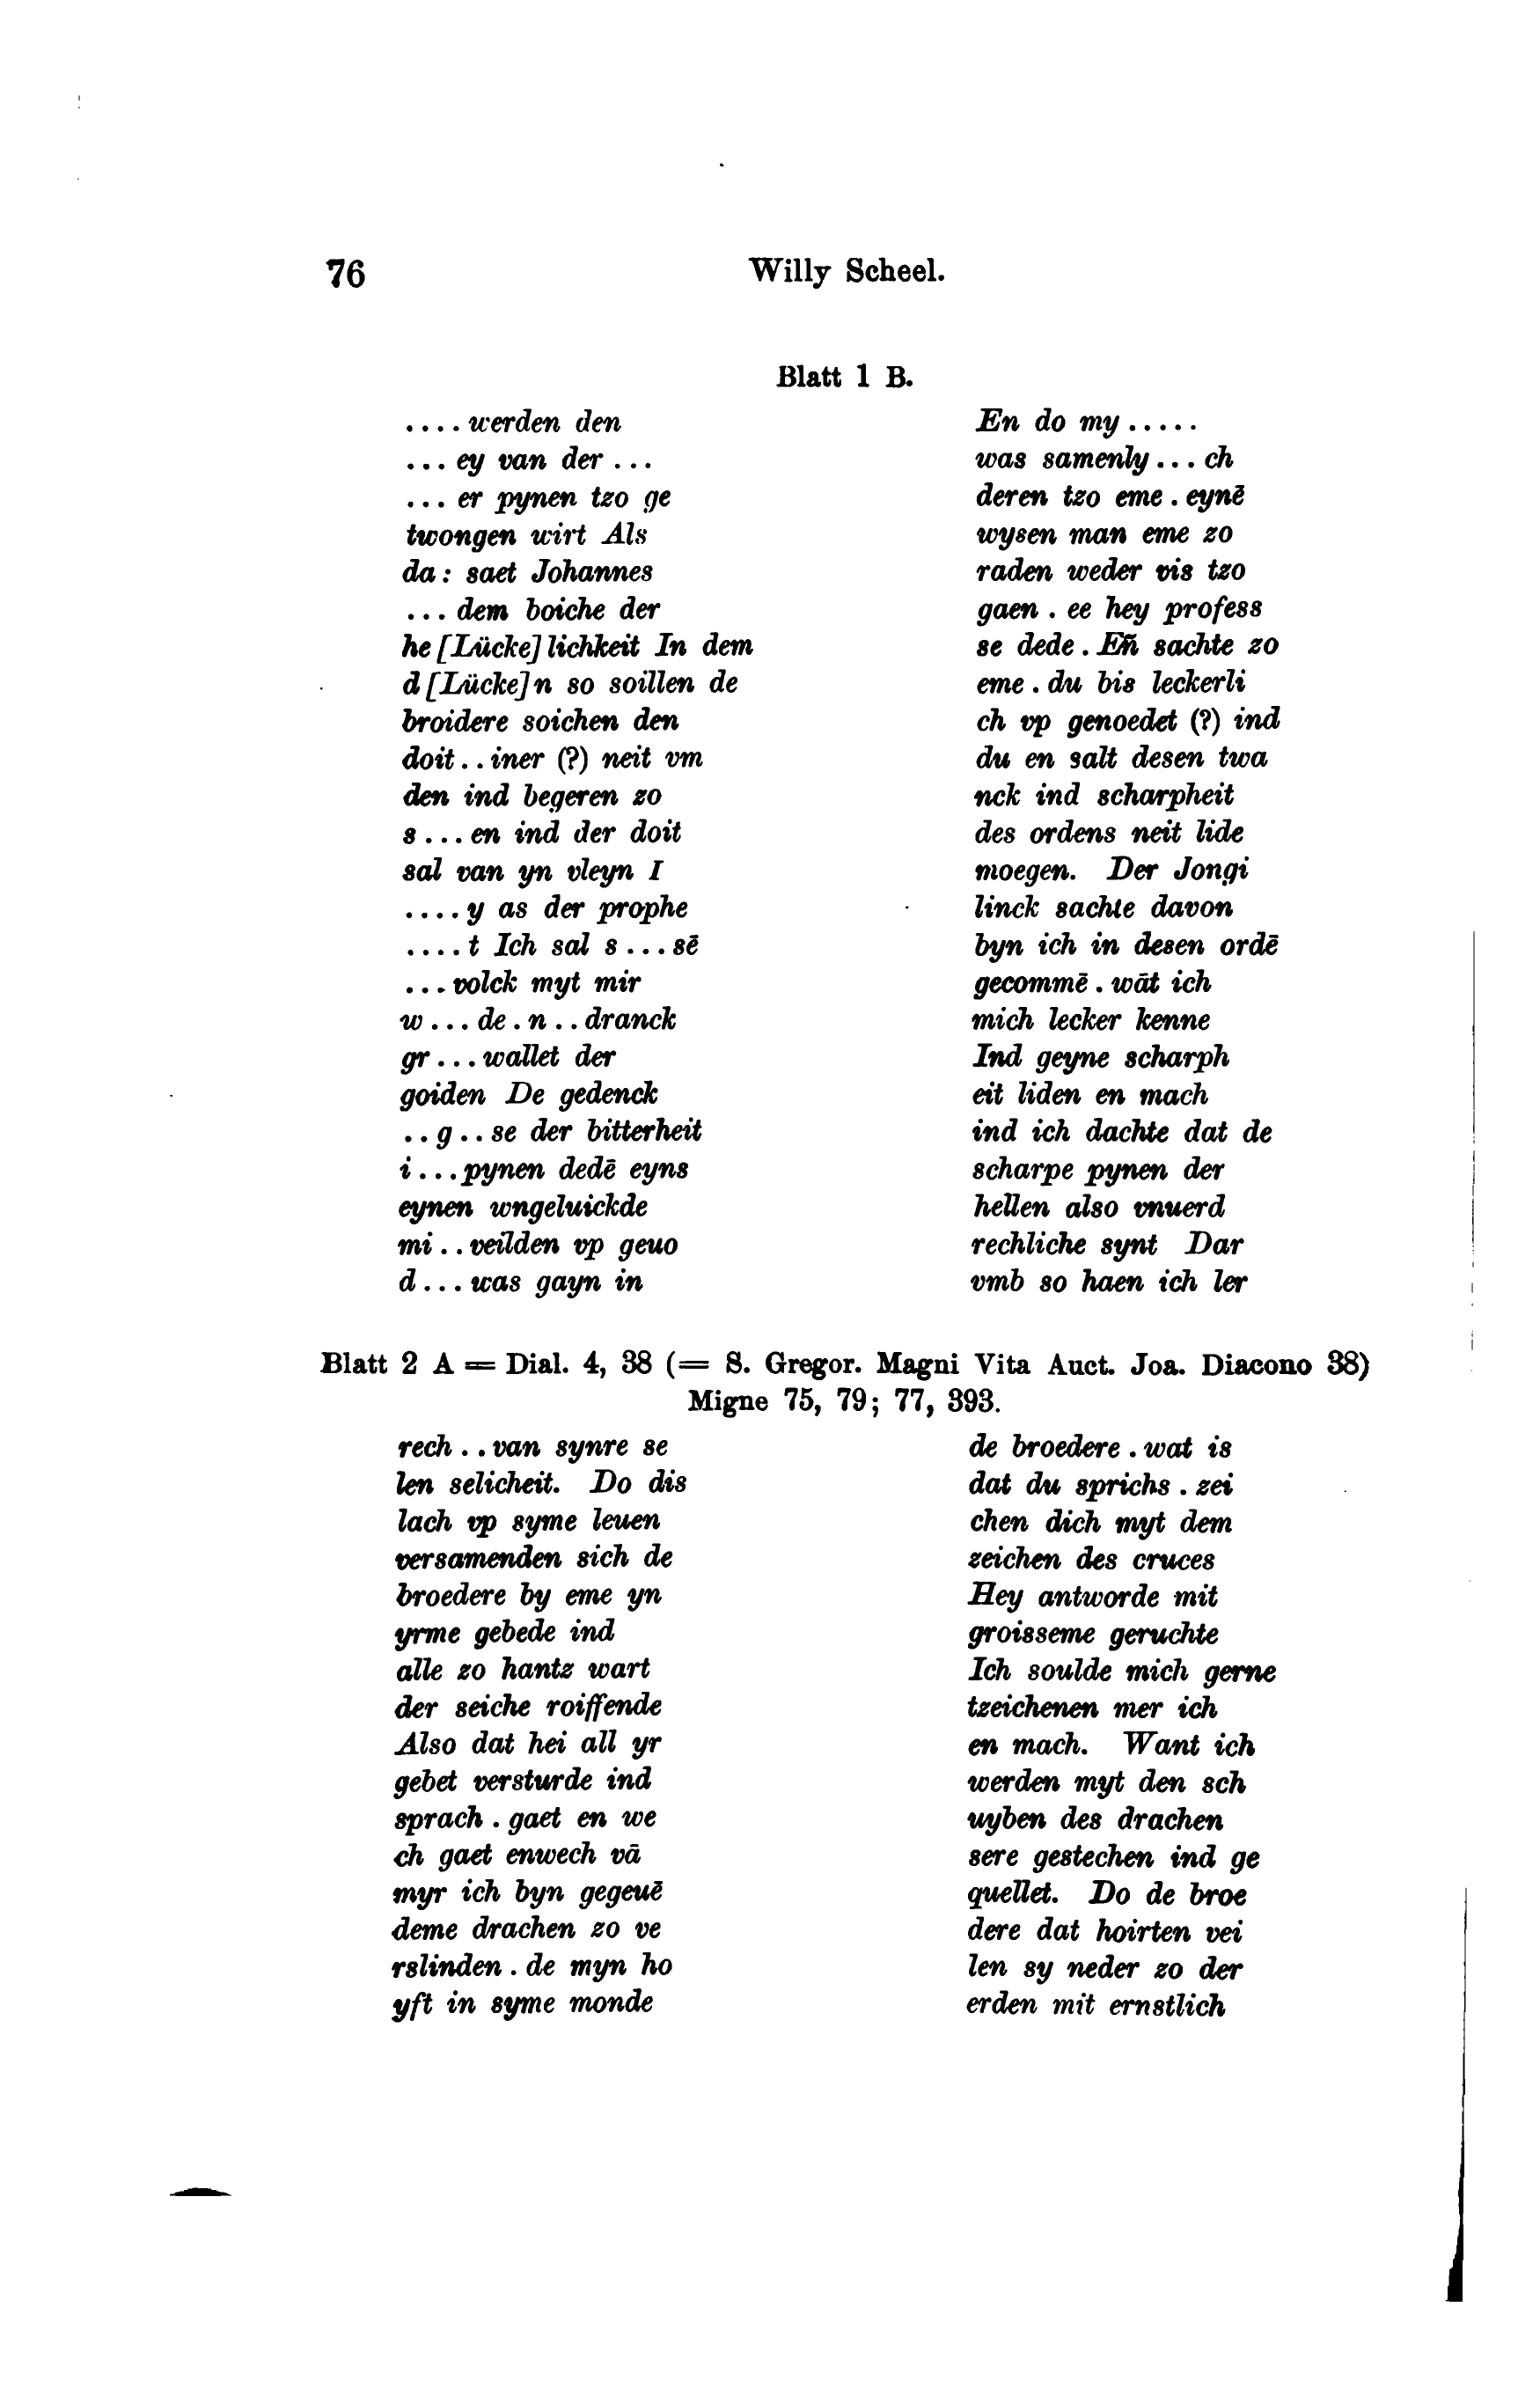 76
Willy Scheel.
Blatt 1 B.
.... werden den
... ey van der ...
... er pynen tzo ge
twongen wirt Als
da: saet Johannes
... dem boiche der
he [Lücke] lichkeit In dem
d [Lücke] n so soillen de
broidere soichen den
doit .. iner (?) neit vm
den ind begeren zo
s ... en ind der doit
sal van yn vleyn I
.... y as der prophe
.... t Ich sal s ... sē
... volck myt mir
w ... de . n .. dranck
gr ... wallet der
goiden De gedenck
.. g .. se der bitterheit
i ... pynen dedē eyns
eynen wngeluickde
mi .. veilden vp geuo
d ... was gayn in
En do my .....
was samenly ... ch
deren tzo eme . eynē
wysen man eme zo
raden weder vis tzo
gaen . ee hey profess
se dede . En̄ sachte zo
eme . du bis leckerli
ch vp genoedet (?) ind
du en salt desen twa
nck ind scharpheit
des ordens neit lide
moegen. Der Jongi
linck sachte davon
byn ich in desen ordē
gecommē . wāt ich
mich lecker kenne
Ind geyne scharph
eit liden en mach
ind ich dachte dat de
scharpe pynen der
hellen also vnuerd
rechliche synt Dar
vmb so haen ich ler
Blatt 2 A = Dial. 4, 38 (= S. Gregor. Magni Vita Auct. Joa. Diacono 38)
Migne 75, 79; 77, 393.
rech .. van synre se
len selicheit. Do dis
lach vp syme leuen
versamenden sich de
broedere by eme yn
yrme gebede ind
alle zo hantz wart
der seiche roiffende
Also dat hei all yr
gebet versturde ind
sprach . gaet en we
ch gaet enwech vā
myr ich byn gegeuē
deme drachen zo ve
rslinden . de myn ho
yft in syme monde
de broedere . wat is
dat du sprichs . zei
chen dich myt dem
zeichen des cruces
Hey antworde mit
groisseme geruchte
Ich soulde mich gerne
tzeichenen mer ich
en mach. Want ich
werden myt den sch
uyben des drachen
sere gestechen ind ge
quellet. Do de broe
dere dat hoirten vei
len sy neder zo der
erden mit ernstlich